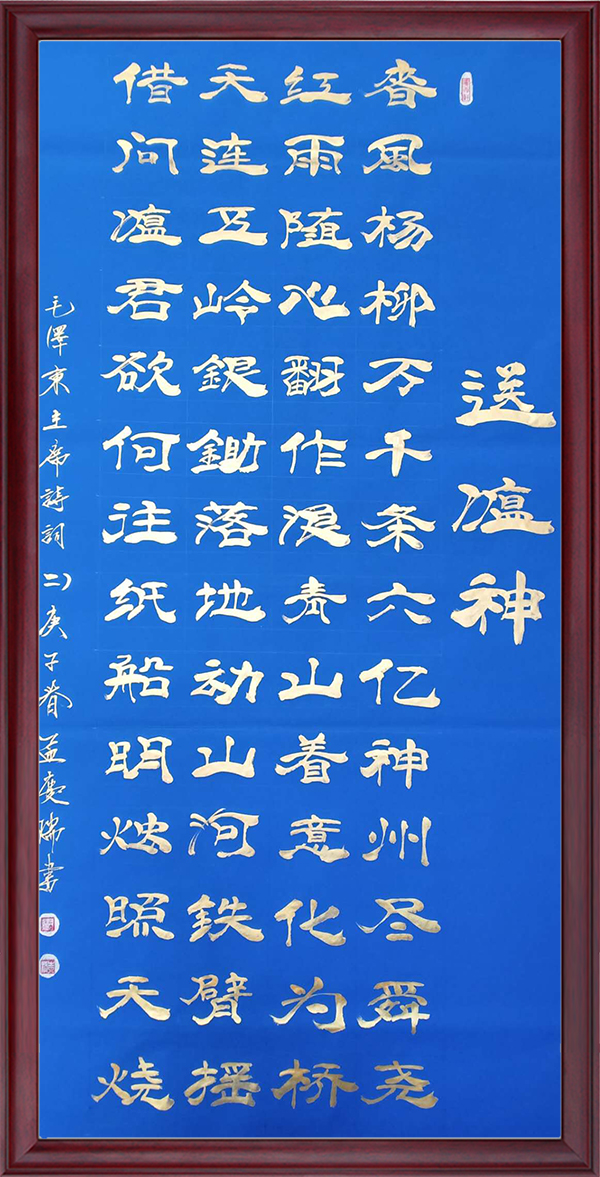 送瘟神
春風杨柳万千条六亿神州尽舜尧
红雨随心翻作浪青山着意化为桥
天连五岭銀鋤落地动山河鉄臂摇
借问瘟君欲何往纸船明烛照天烧
毛澤東主席詩詞二)庚子春孟慶瑞書